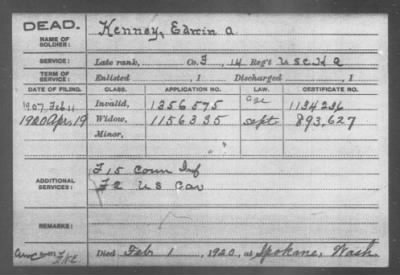 DEAD. Kenney, Edwin A.
NAME OF SOLDIER:
SERVICE: Late rank, Co. F, 14 Reg't U S C H A
TERM OF SERVICE: Enlisted , 1 Discharged , 1
DATE OF FILING. CLASS. APPLICATION NO. LAW. CERTIFICATE NO.
1907 Feb 11 Invalid, 1356575 1134236
1920 Apr 19 Widow, 1156335 Sept 893,627
Minor,
ADDITIONAL SERVICES: F 15 Conn Inf
F 2 U S Cav
REMARKS:
Died Feb 1, 1920, at Spokane, Wash